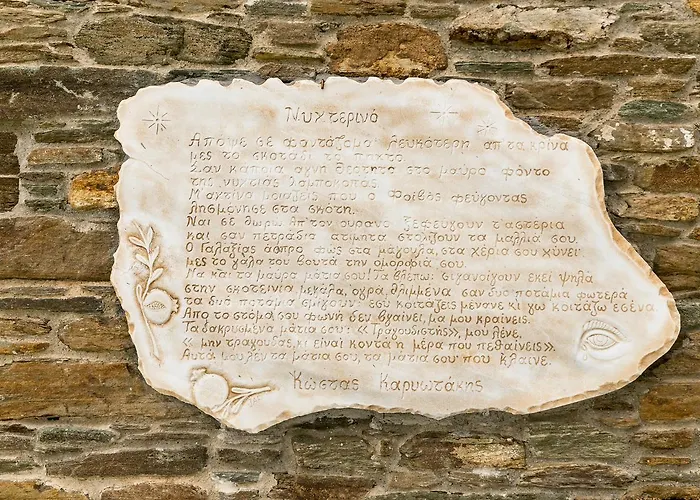 Νυχτερινό
Απόψε σε φαντάζομαι λευκότερη απ τα κρίνα
μες το σκοτάδι το πηχτό.
Σαν κάποια αχνή θεότητα στο μαύρο φόντο
της νυχτιάς λαμποκοπάς
Μ'αχτίνα μοιάζεις που ο Φοίβος φεύγοντας
λησμόνησε στα σκότη.
Ναι σε θωρώ. απ' τον ουρανό ξεφεύγουν τ'αστέρια
και σαν πετράδια ατίμητα στολίζουν τα μαλλιά σου.
Ο Γαλαξίας άσπρο φως στα μάγουλα, στα χέρια σου χύνει
μες το γάλα του βουτά την ομορφιά σου.
Να και τα μαύρα μάτια σου! Τα βλέπω: σιγανοίγουν εκεί ψηλά
στην σκοτεινιά μεγάλα, ογρά, θλιμμένα σαν δυό ποτάμια φωτερά
τα δυό ποτάμια σμίγουν εσύ κοιτάζεις μένανε κι γω κοιτάζω εσένα
Απο το στόμα σου φωνή δεν βγαίνει, μα μου κραίνεις.
Τα δακρυσμένα μάτια σου: «Τραγουδιστής», μου λένε,
« μην τραγουδάς, κι είναι κοντά η μέρα που πεθαίνεις».
Αυτά μου λεν τα μάτια σου, τα μάτια σου που κλαίνε.
Κώστας Καρυωτάκης